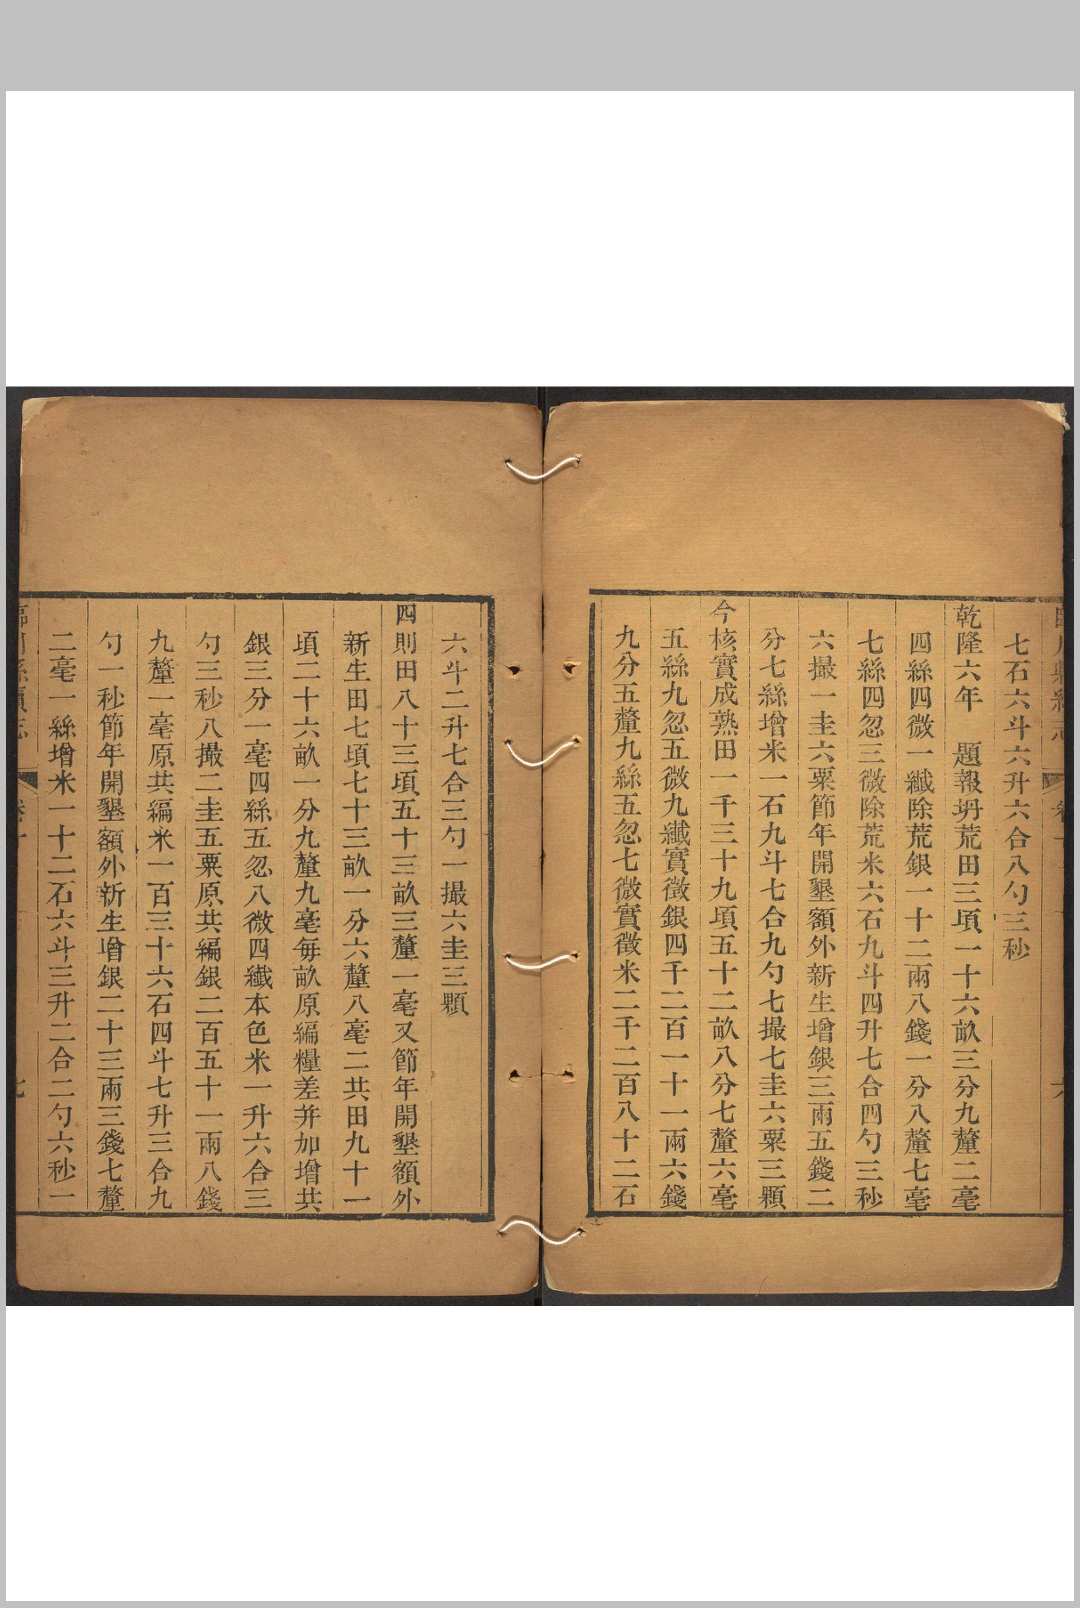 七石六斗六升六合八勺三秒
乾隆六年 題報坍荒田三頃一十六畝三分九釐二毫
四絲四微一纖除荒銀一十二兩八錢一分八釐七毫
七絲四忽三微除荒米六石九斗四升七合四勺三秒
六撮一圭六粟節年開墾額外新生增銀三兩五錢二
分七絲增米一石九斗七合九勺七撮七圭六粟三顆
今核實成熟田一千三十九頃五十二畝八分七釐六毫
五絲九忽五微九纖實徵銀四千二百一十一兩六錢
九分五釐九絲五忽七微實徵米二千二百八十二石
六斗二升七合三勺一撮六圭三顆
四則田八十三頃五十三畝三釐一毫又節年開墾額外
新生田七頃七十三畝一分六釐八毫二共田九十一
頃二十六畝一分九釐九毫每畝原編糧差并加增共
銀三分一毫四絲五忽八微四纖本色米一升六合三
勺三秒八撮二圭五粟原共編銀二百五十一兩八錢
九釐一毫原共編米一百三十六石四斗七升三合九
勺一秒節年開墾額外新生增銀二十三兩三錢七釐
二毫一絲增米一十二石六斗三升二合二勺六秒二